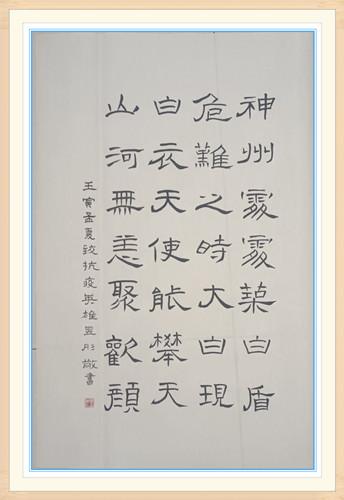 神州處處築白盾
危難之時大白現
白衣天使能攀天
山河無恙聚歡顔
壬寅孟夏致抗疫英雄彤敬書